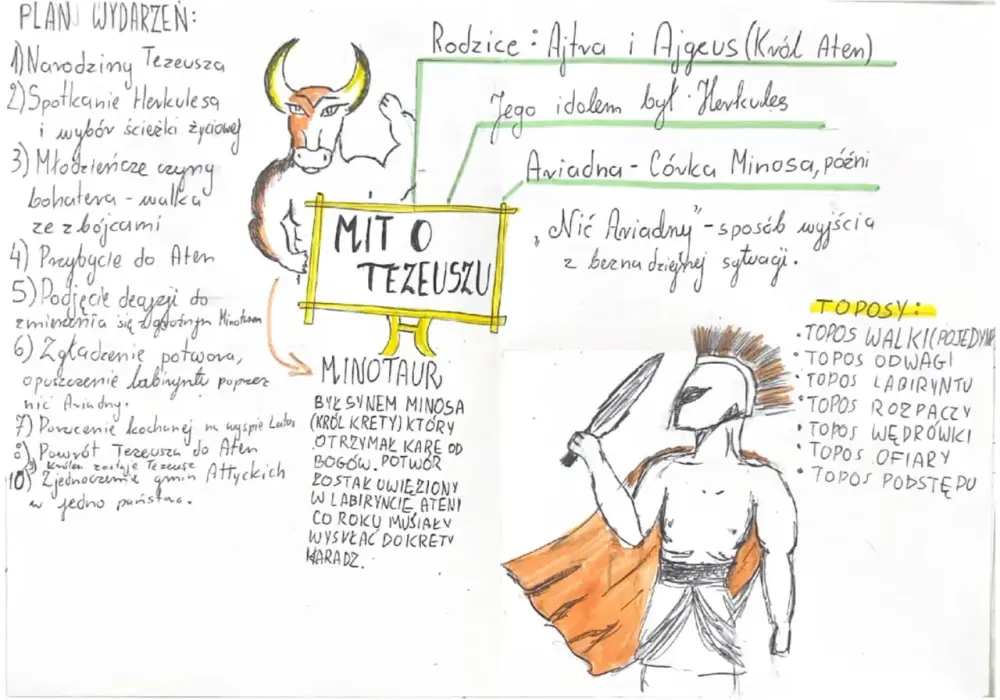 PLAN WYDARZEŃ:
1) Narodziny Tezeusza
2) Spotkanie Herkulesa
i wybór ścieżki życiowej
3) Młodzieńcze czyny
bohatera - walka
ze zbójcami
4) Przybycie do Aten
5) Podjęcie decyzji do
zmierzenia się z groźnym Minotaurem
6) Zgładzenie potwora,
opuszczenie labiryntu poprzez
nić Ariadny.
7) Porzucenie kochanej na wyspie
8) Powrót Tezeusza do Aten
9) Królem zostaje Tezeusz
10) Zjednoczenie gmin Attyckich
w jedno państwo.
Rodzice: Ajtra i Ajgeus (Król Aten)
Jego idolem był Herkules
Ariadna - Córka Minosa, późni
"Nić Ariadny" - sposób wyjścia
z beznadziejnej sytuacji.
MIT O
TEZEUSZU
MINOTAUR
BYŁ SYNEM MINOSA
(KRÓL KRETY) KTÓRY
OTRZYMAŁ KARĘ OD
BOGÓW. POTWÓR
ZOSTAŁ UWIĘZIONY
W LABIRYNCIE, ATENY
CO ROKU MUSIAŁY
WYSYŁAĆ DO KRETY
HARADZ.
TOPOSY:
• TOPOS WALKI (POJEDYNK
• TOPOS ODWAGI
• TOPOS LABIRYNTU
• TOPOS ROZPACZY
• TOPOS WĘDRÓWKI
• TOPOS OFIARY
• TOPOS PODSTĘPU